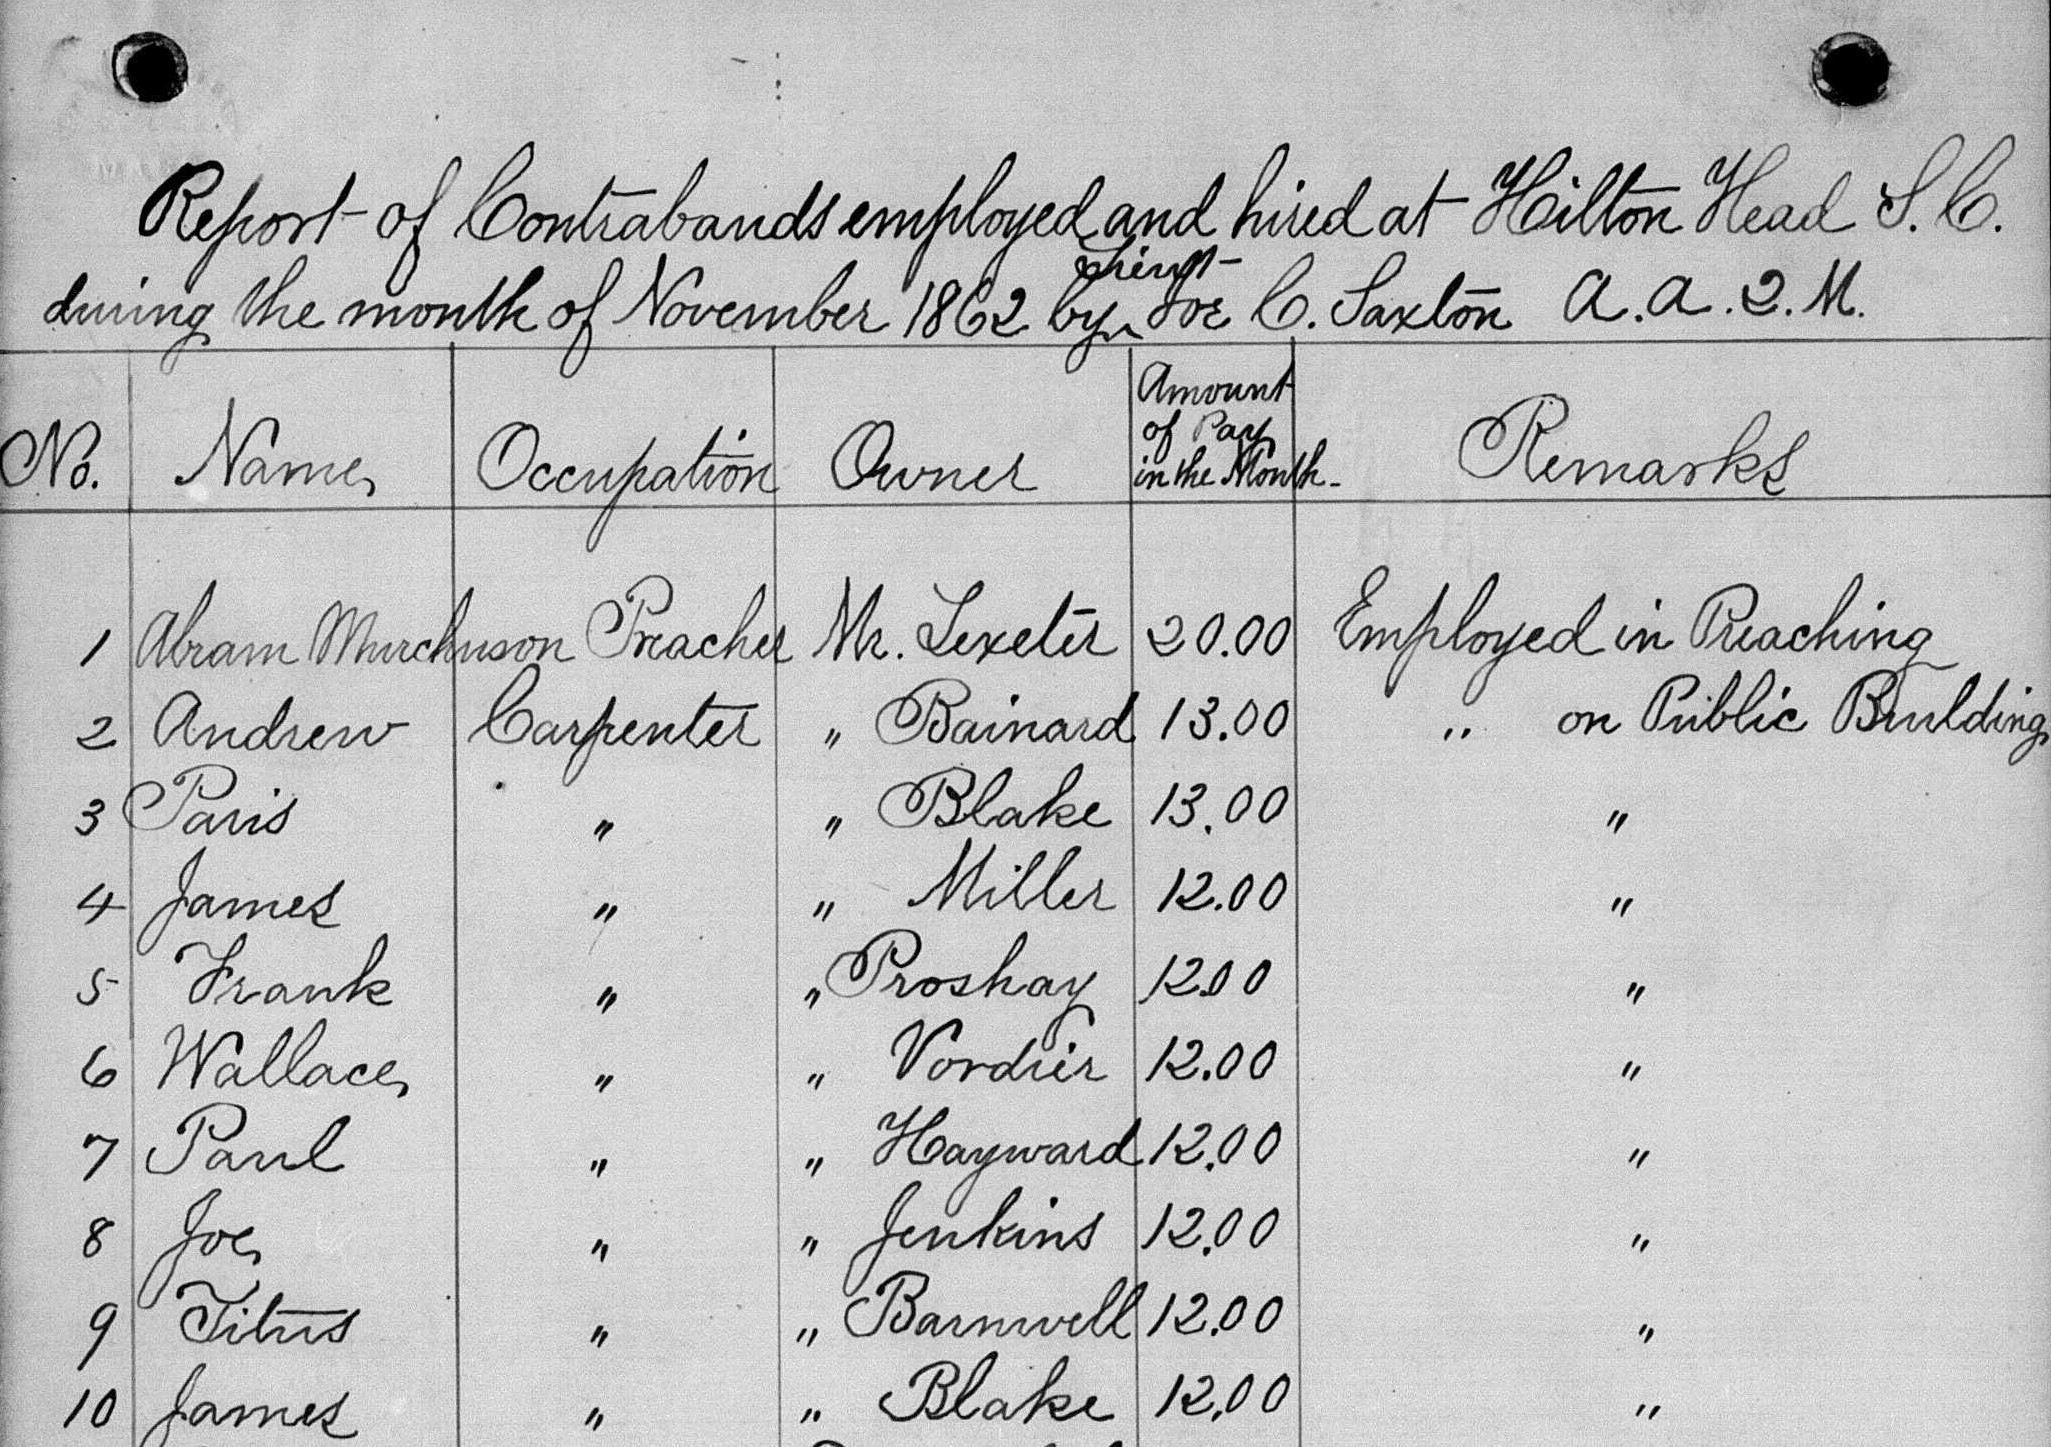 Report of Contrabands employed and hired at Hilton Head S. C.
during the month of November 1862 by Lieut Joe C. Saxton A. A. Q. M.
No. Name Occupation Owner Amount of Pay in the Month Remarks
1 Abram Murchuson Preacher Mr. Lexeter 20.00 Employed in Preaching
2 Andrew Carpenter " Bainard 13.00 " on Public Building
3 Paris " " Blake 13.00 "
4 James " " Miller 12.00 "
5 Frank " " Proshay 12.00 "
6 Wallace " " Vordier 12.00 "
7 Paul " " Hayward 12.00 "
8 Joe " " Jenkins 12.00 "
9 Titus " " Barnwell 12.00 "
10 James " " Blake 12.00 "